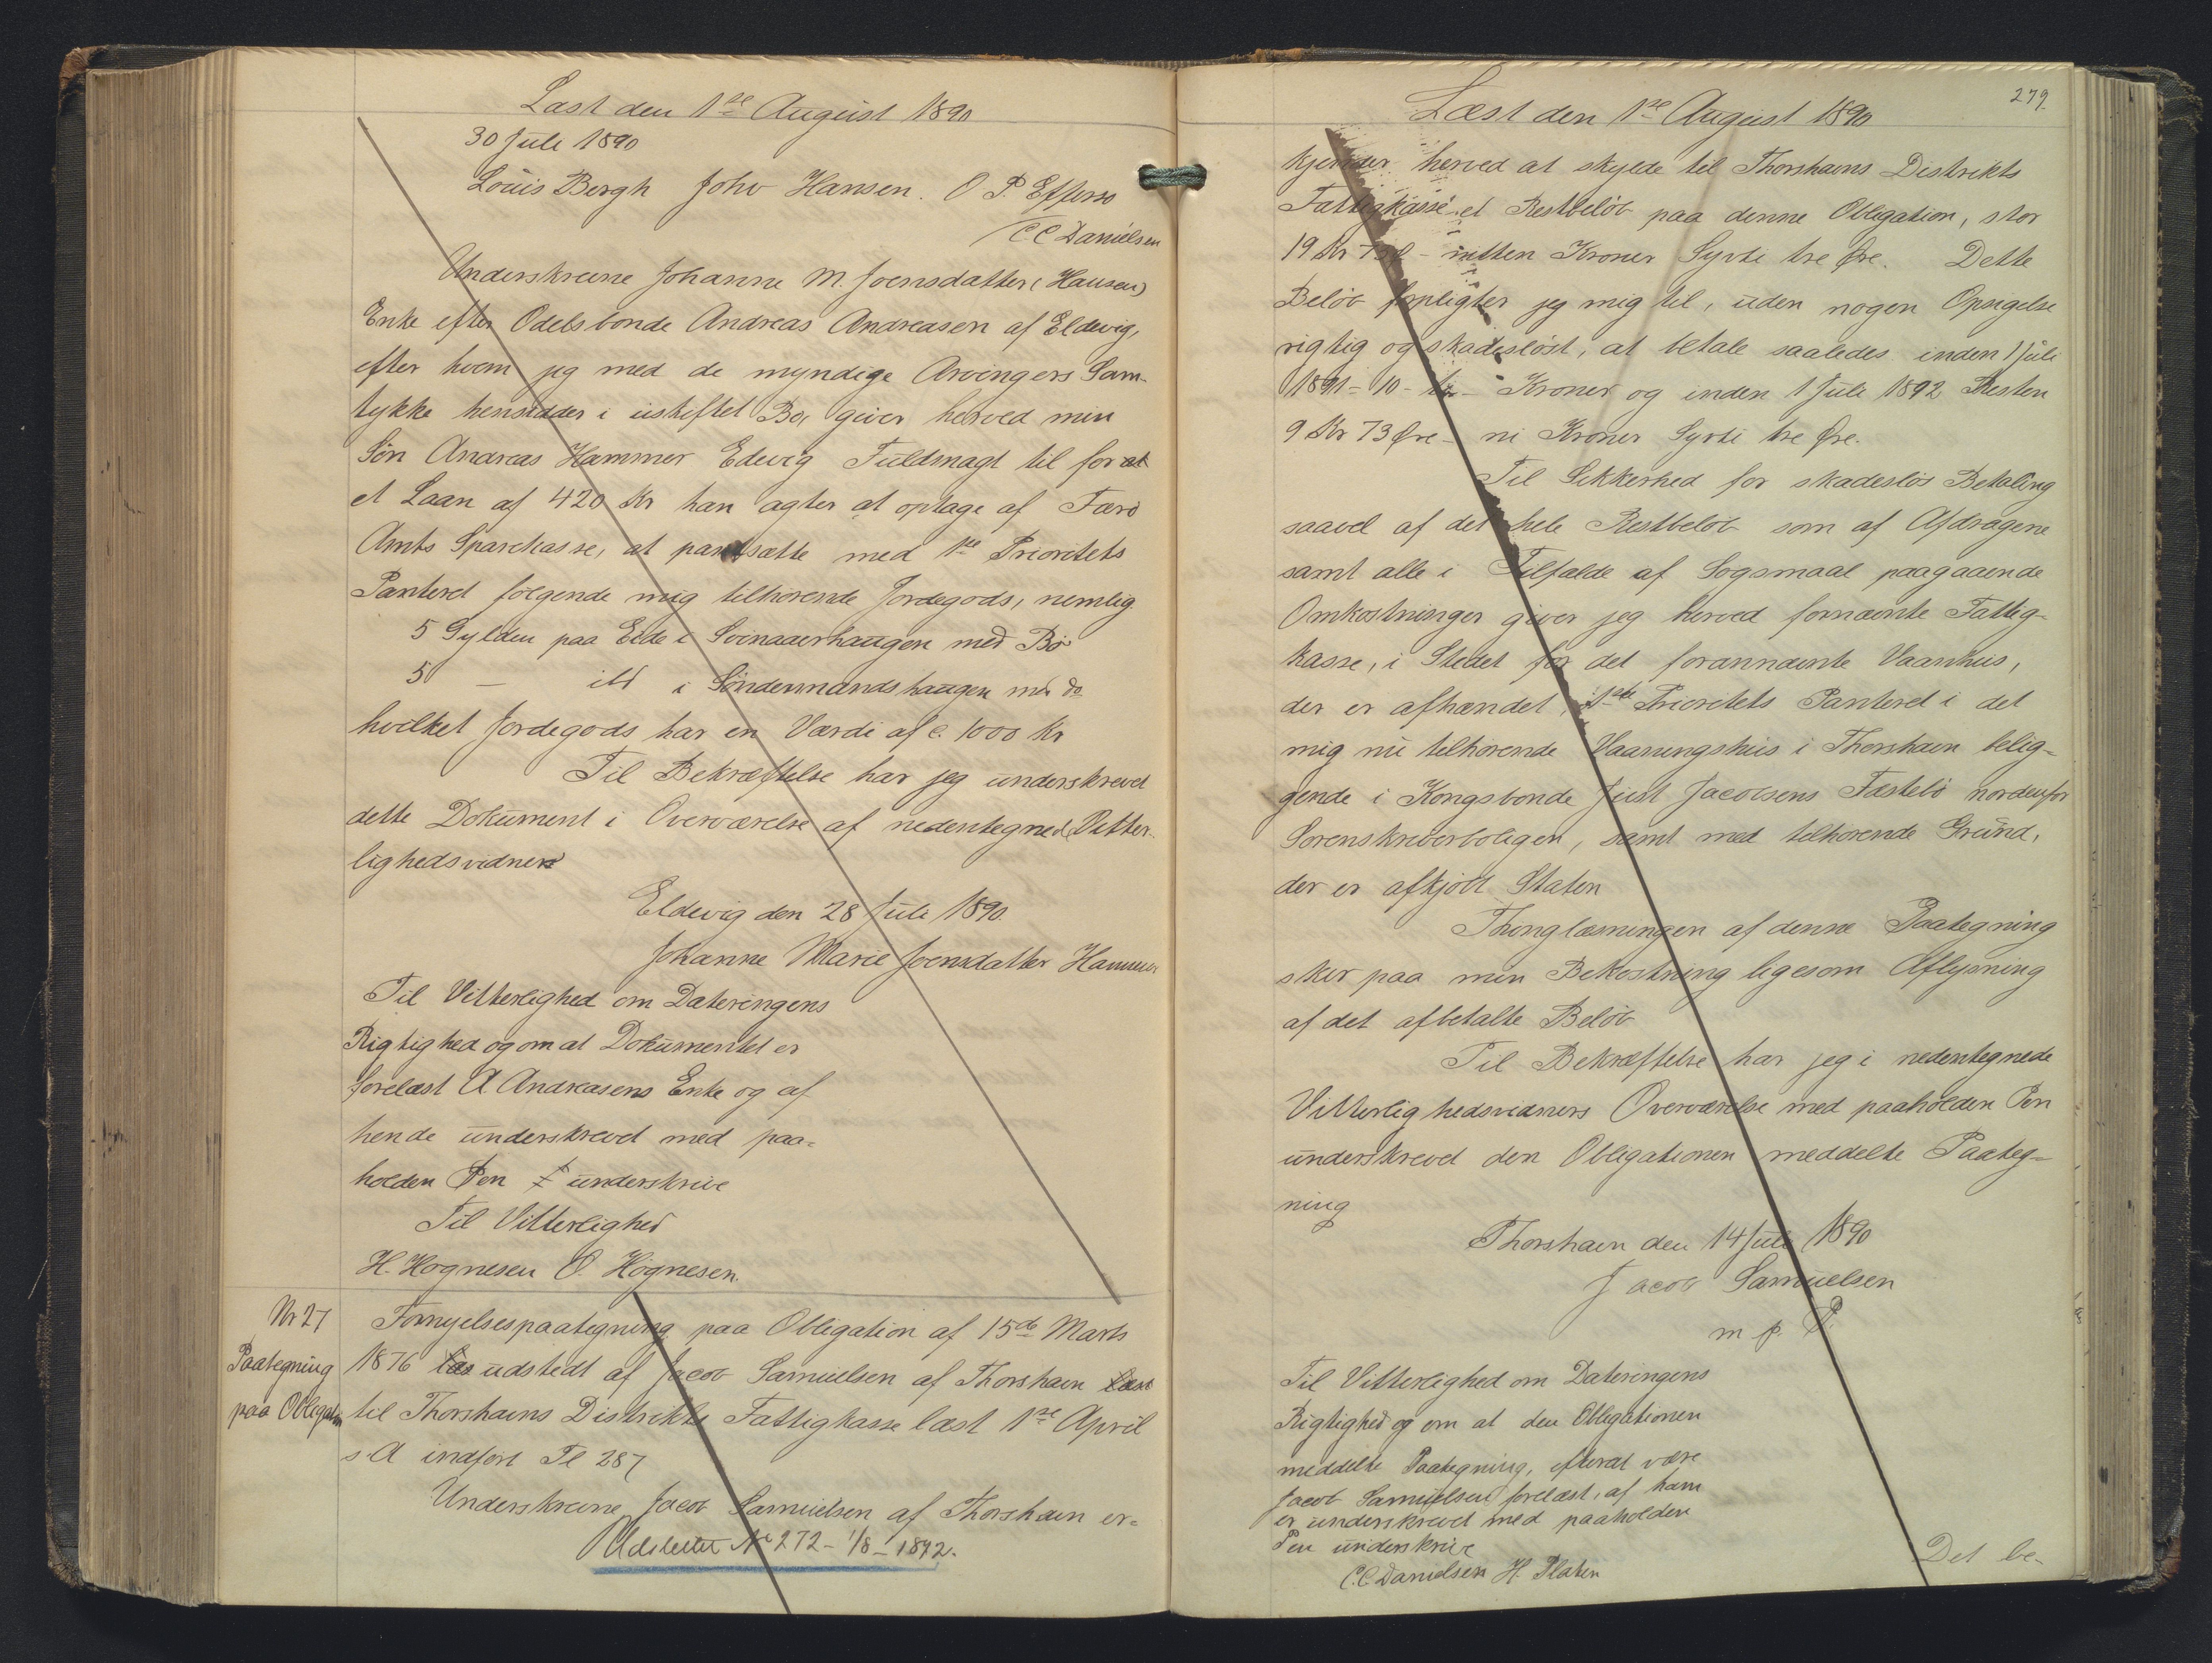 Læst den 1ste August 1890
30 Juli 1890
Louis Bergh John Hansen. O P. Effersø
/ C C Danielsen
Underskrevne Johanne M. Joensdatter (Hansen)
Enke efter Odelsbonde Andreas Andreasen af Eldevig,
efter hvem jeg med de myndige Arvingers Sam-
tykke hensidder i uskiftet Bo, giver herved min
Søn Andreas Hammer Edevig Fuldmagt til for at
et Laan af 420 Kr han agter at optage af Færø
Amts Sparekasse, at pantsætte med 1ste Prioritets
Panteret følgende mig tilhørende Jordegods, nemlig
5 Gylden paa Eide i Svinaaerhaugen med Bø
5 — ibd i Søndenmandshaugen med do
hvilket Jordegods har en Værdi af c. 1000 Kr
Til Bekræftelse har jeg underskrevet
dette Dokument i Overværelse af nedentegnede Vitter-
lighedsvidner
Eldevig den 28 Juli 1890.
Johanne Marie Joensdatter Hammer
Til Vitterlighed om Dateringens
Rigtighed og om at Dokumentet er
forelæst A Andreasens Enke og af
hende underskrevet med paa-
holden Pen underskrive
Til Vitterlighed
H. Høgnesen O. Høgnesen.
Nr 27
Paategning
paa Obligation
Fornyelsespaategning paa Obligation af 15de Marts
1876 læs udstedt af Jacob Samuelsen af Thorshavn læst
til Thorshavns Distrikts Fattigkasse læst 1ste April
s. A indført Fl 287
Underskrevne Jacob Samuelsen af Thorshavn er-
Udslettet No 272 - 1/8 - 1892.
279.
Læst den 1ste August 1890
kjender herved at skylde til Thorshavns Distrikts
Fattigkasse et Restbeløb paa denne Obligation, stor
19 Kr 73 Ø - nitten Kroner Syvti tre Øre. Dette
Beløb forpligter jeg mig til, uden nogen Opsigelse
rigtig og skadesløst, at betale saaledes inden 1 Juli
1891 - 10 - ti - Kroner og inden 1 Juli 1892 Resten
9 Kr 73 Øre - ni Kroner Syvti tre Øre.
Til Sikkerhed for skadesløs Betaling
saavel af det hele Restbeløb som af Afdragene
samt alle i Tilfælde af Søgsmaal paagaaende
Omkostninger giver jeg herved fornævnte Fattig-
kasse, i Stedet for det forannævnte Vaanhus,
der er afhændet, 1ste Prioritets Panteret i det
mig nu tilhørende Vaaningshus i Thorshavn belig-
gende i Kongsbonde Just Jacobsens Fæstebø nordenfor
Sorenskriverboligen, samt med tilhørende Grund,
der er afkjøbt Staten
Thinglæsningen af denne Paategning
sker paa min Bekostning ligesom Aflysning
af det afbetalte Beløb
Til Bekræftelse har jeg i nedentegnede
Vitterlighedsvidners Overværelse med paaholden Pen
underskrevet den Obligationen meddelte Paateg-
ning
Thorshavn den 14 Juli 1890
Jacob Samuelsen
m. p. P.
Til Vitterlighed om Dateringens
Rigtighed og om at den Obligationen
meddelte Paategning, efterat være
Jacob Samuelsen forelæst, af ham
er underskrevet med paaholden
Pen underskrive
C. C Danielsen H. Platen
Det be-